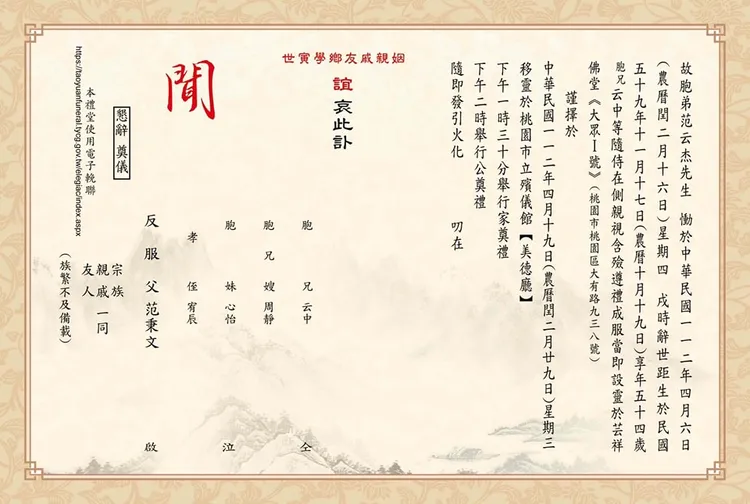 故胞弟范云杰先生　慟於中華民國一一二年四月六日
(農曆閏二月十六日)星期四　戌時辭世距生於民國
五十九年十一月十七日(農曆十月十九日)享年五十四歲
胞兄云中等隨侍在側親視含殮遵禮成服當即設靈於芸祥
佛堂《大眾I號》(桃園市桃園區大有路九三八號)
謹擇於
中華民國一一二年四月十九日(農曆閏二月廿九日)星期三
移靈於桃園市立殯儀館【美德廳】
下午一時三十分舉行家奠禮
下午二時舉行公奠禮
隨即發引火化　叨在
姻親戚友鄉學寅世
誼　哀此訃
聞
胞兄云中　仝
胞兄嫂周靜
胞妹心怡　泣
孝侄宥辰
反服父范秉文　啟
宗族
親戚一同
友人
(族繁不及備載)
懇辭　奠儀
本禮堂使用電子輓聯
https://taoyuanfuneral.tycg.gov.tw/elegiac/index.aspx